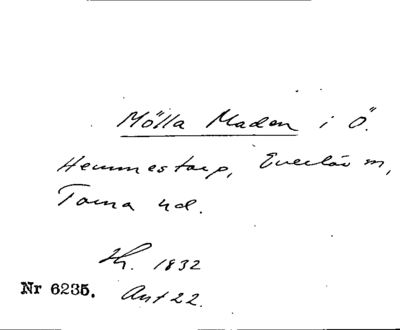 Mölla Maden i Ö.
Hemmestorp, Everlöv sn,
Torna hd.
Sk. 1832
Nr 6235. Ant 22.